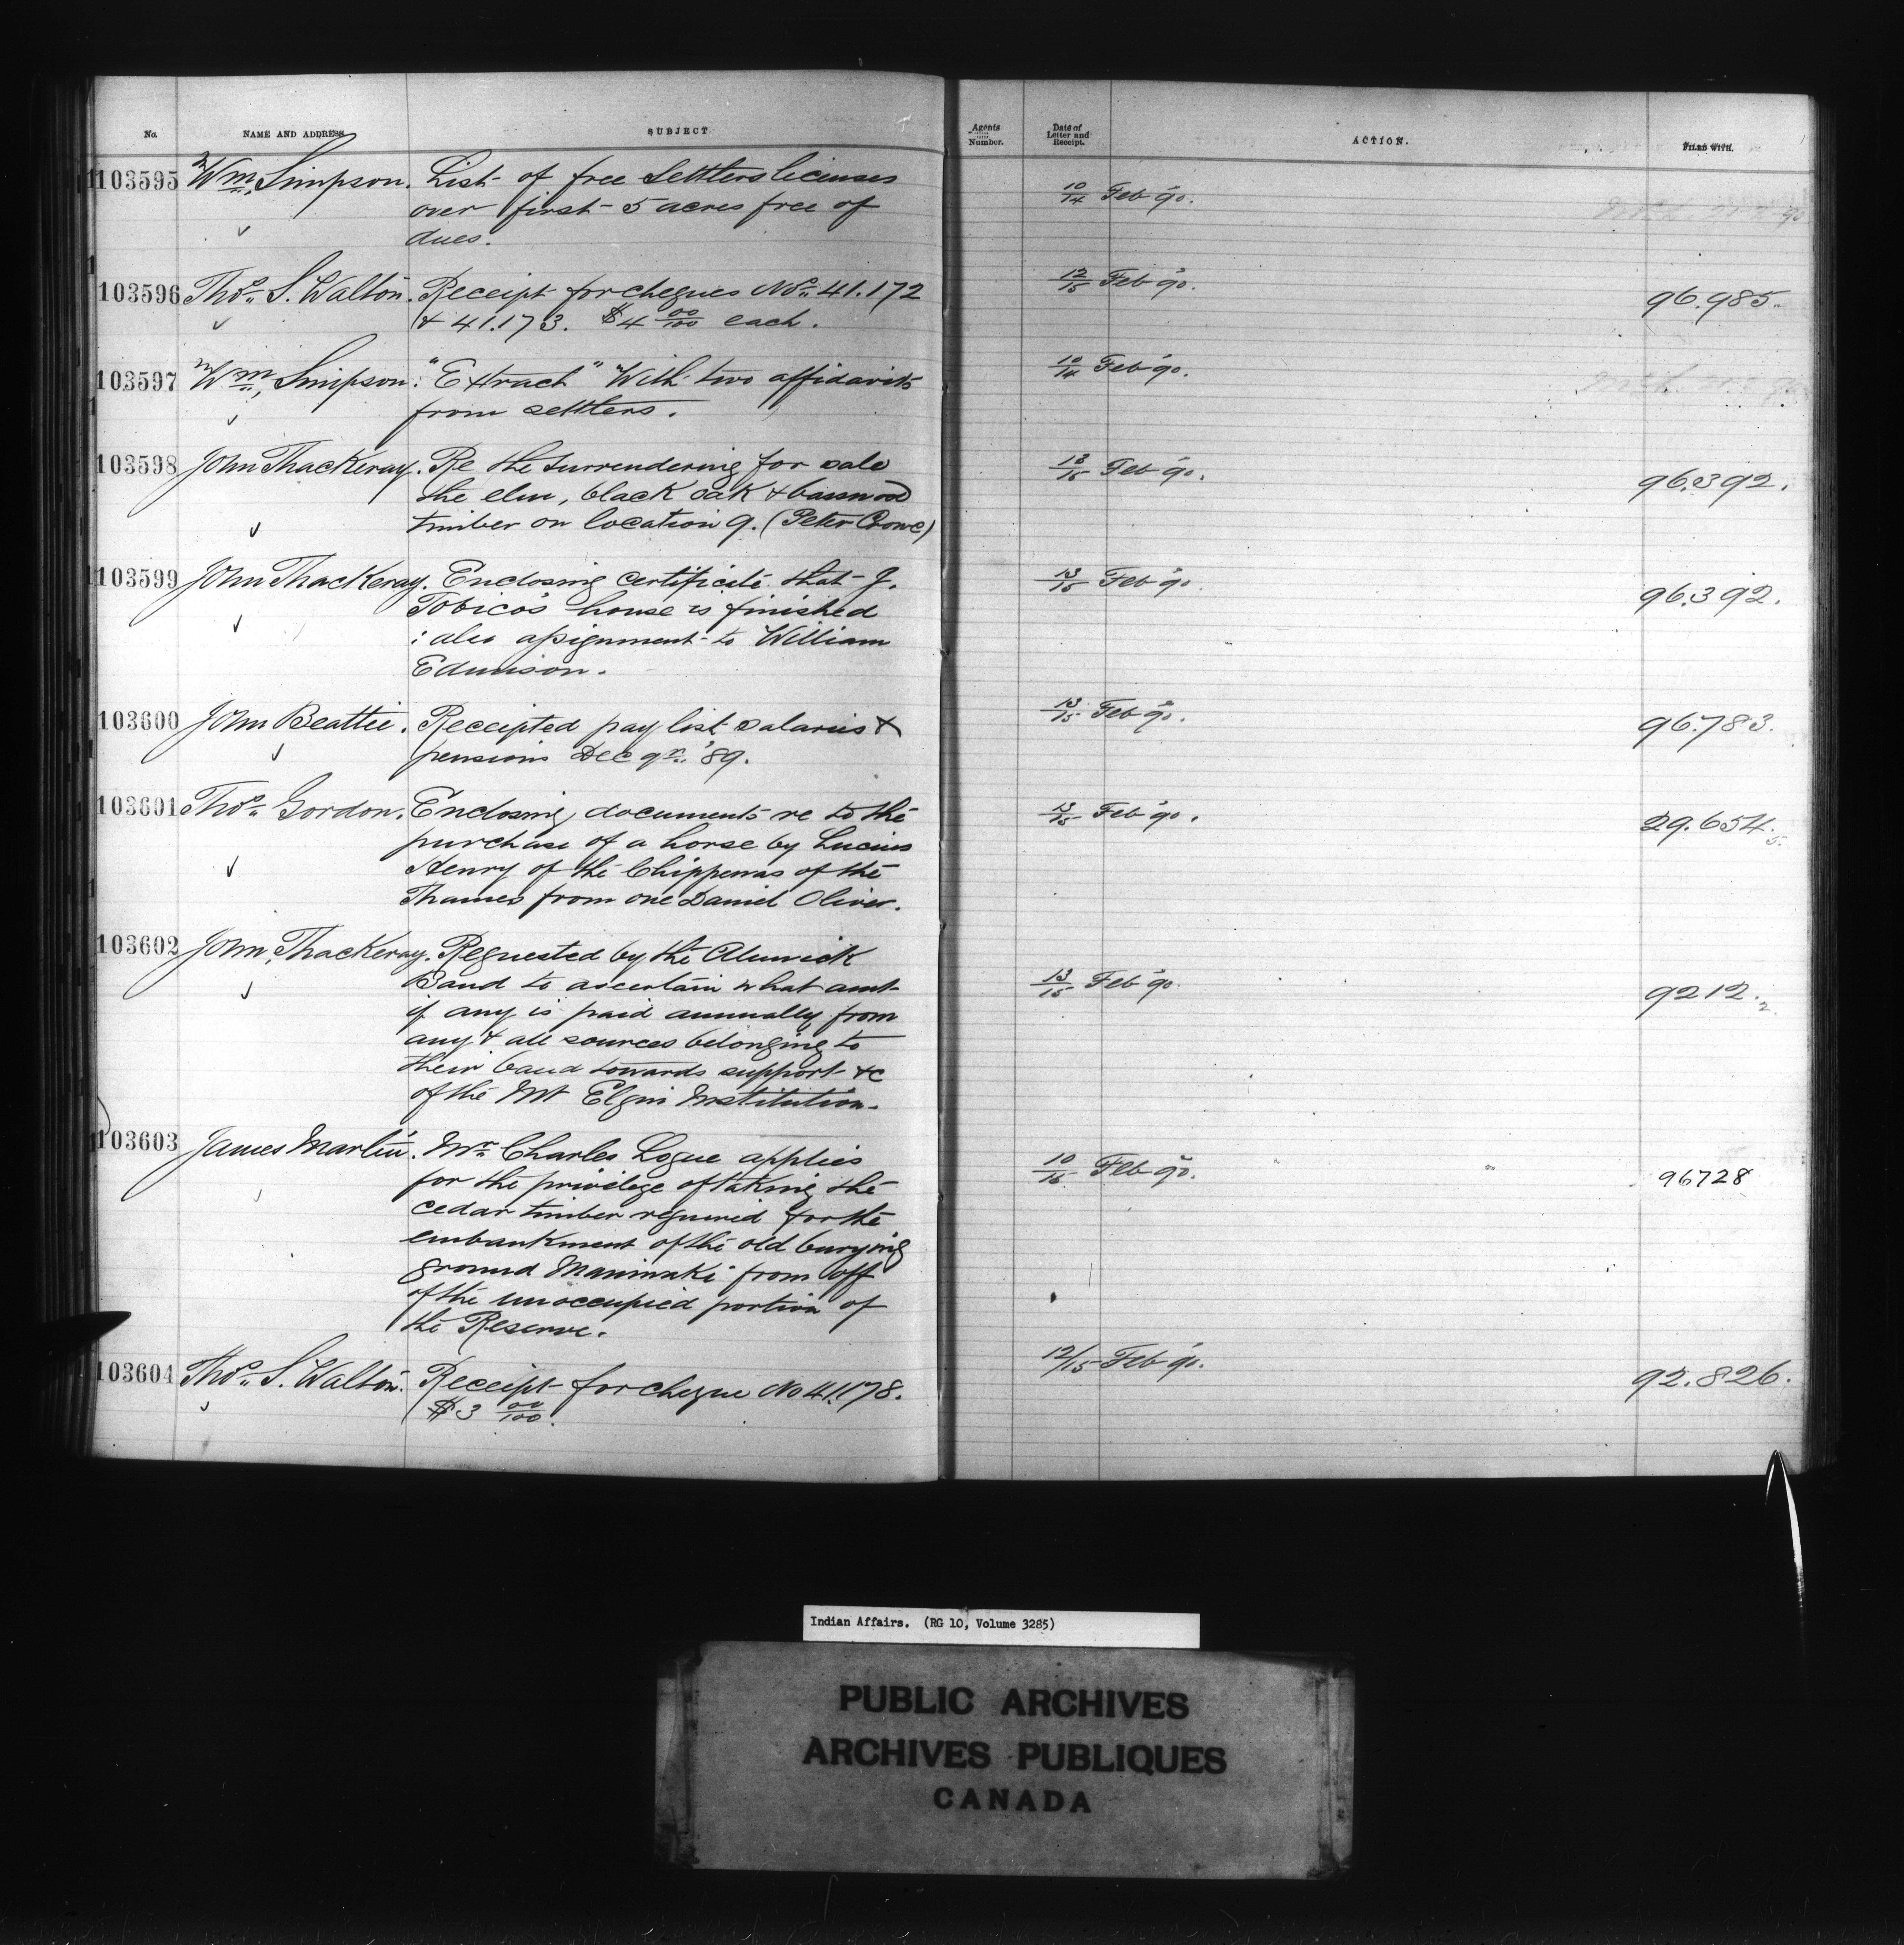 No. NAME AND ADDRESS. SUBJECT. Agents Number. Date of Letter and Receipt. ACTION. FILED WITH.
103595 Wm. Simpson. List of free Settlers licenses 10/14 Feb '90.
over first 5 acres free of
dues.
103596 Thos. S. Walton. Receipt for cheques Nos. 41.172 12/15 Feb '90. 96.985.
& 41.173. $4 00/100 each.
103597 Wm. Simpson. "Extract" With two affidavits 10/14 Feb '90.
from settlers.
103598 John Thackeray. Re the surrendering for sale 13/15 Feb '90. 96.392.
the elm, black oak & basswood
timber on location 9. (Peter Crowe)
103599 John Thackeray. Enclosing certificate that J. 13/15 Feb '90. 96.392.
Tobico's house is finished
: also assignment to William
Edmison.
103600 John Beattie. Receipted pay list salaries & 13/15 Feb '90. 96.783.
pensions Dec qr. '89.
103601 Thos. Gordon. Enclosing documents re to the 13/15 Feb '90. 29.654.5.
purchase of a horse by Lucius
Henry of the Chippewas of the
Thames from one Daniel Oliver.
103602 John Thackeray. Requested by the Alnwick 13/15 Feb '90. 9212.2.
Band to ascertain what amt
if any is paid annually from
any & all sources belonging to
their band towards support &c
of the Mt Elgin Institution.
103603 James Martin. Mr. Charles Logue applies 10/15 Feb '90. 96728
for the privilege of taking the
cedar timber required for the
embankment of the old burying
ground Maniwaki from off
of the unoccupied portion of
the Reserve.
103604 Thos. S. Walton. Receipt for cheque No 41.178. 12/15 Feb '90. 92.826.
$3 00/100.
Indian Affairs. (RG 10, Volume 3285)
PUBLIC ARCHIVES
ARCHIVES PUBLIQUES
CANADA